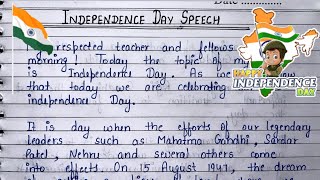 Date
INDEPENDENCE DAY SPEECH
respected teacher and fellows
morning! Today the topic of m
is Independence Day. As we
that today we are celebrating
independence Day.
It is day when the efforts of our legendary
leaders such as Mahatma Gandhi, Sardar
Patel, Nehru and several others come
into effect. On 15 August 1947, the dream
HAPPY
INDEPENDENCE
DAY